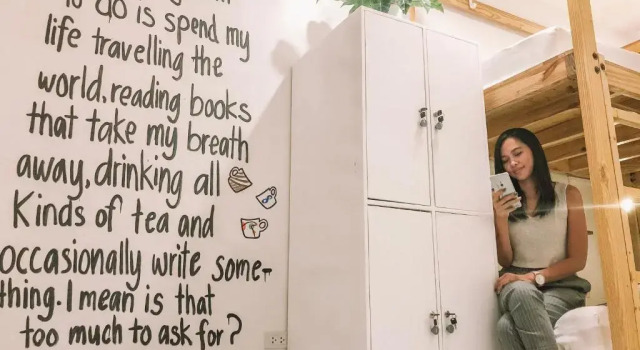 to do is spend my
life travelling the
world, reading books
that take my breath
away, drinking all
kinds of tea and
occasionally write some-
thing. I mean is that
too much to ask for?